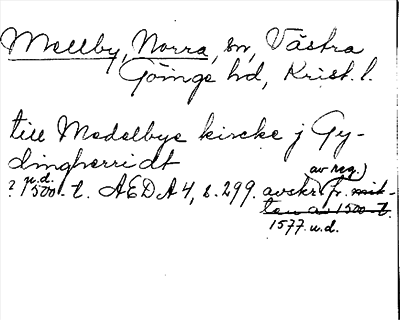 Mellby, Norra, sn, Västra
Göinge hd, Krist. l.
till Medelbye kircke j Gy-
dingherridt
n.d. av reg.)
? 1500-t. AEDA 4, s. 299. avskr. fr. mit-
ten av 1500-t.
1577 u.d.